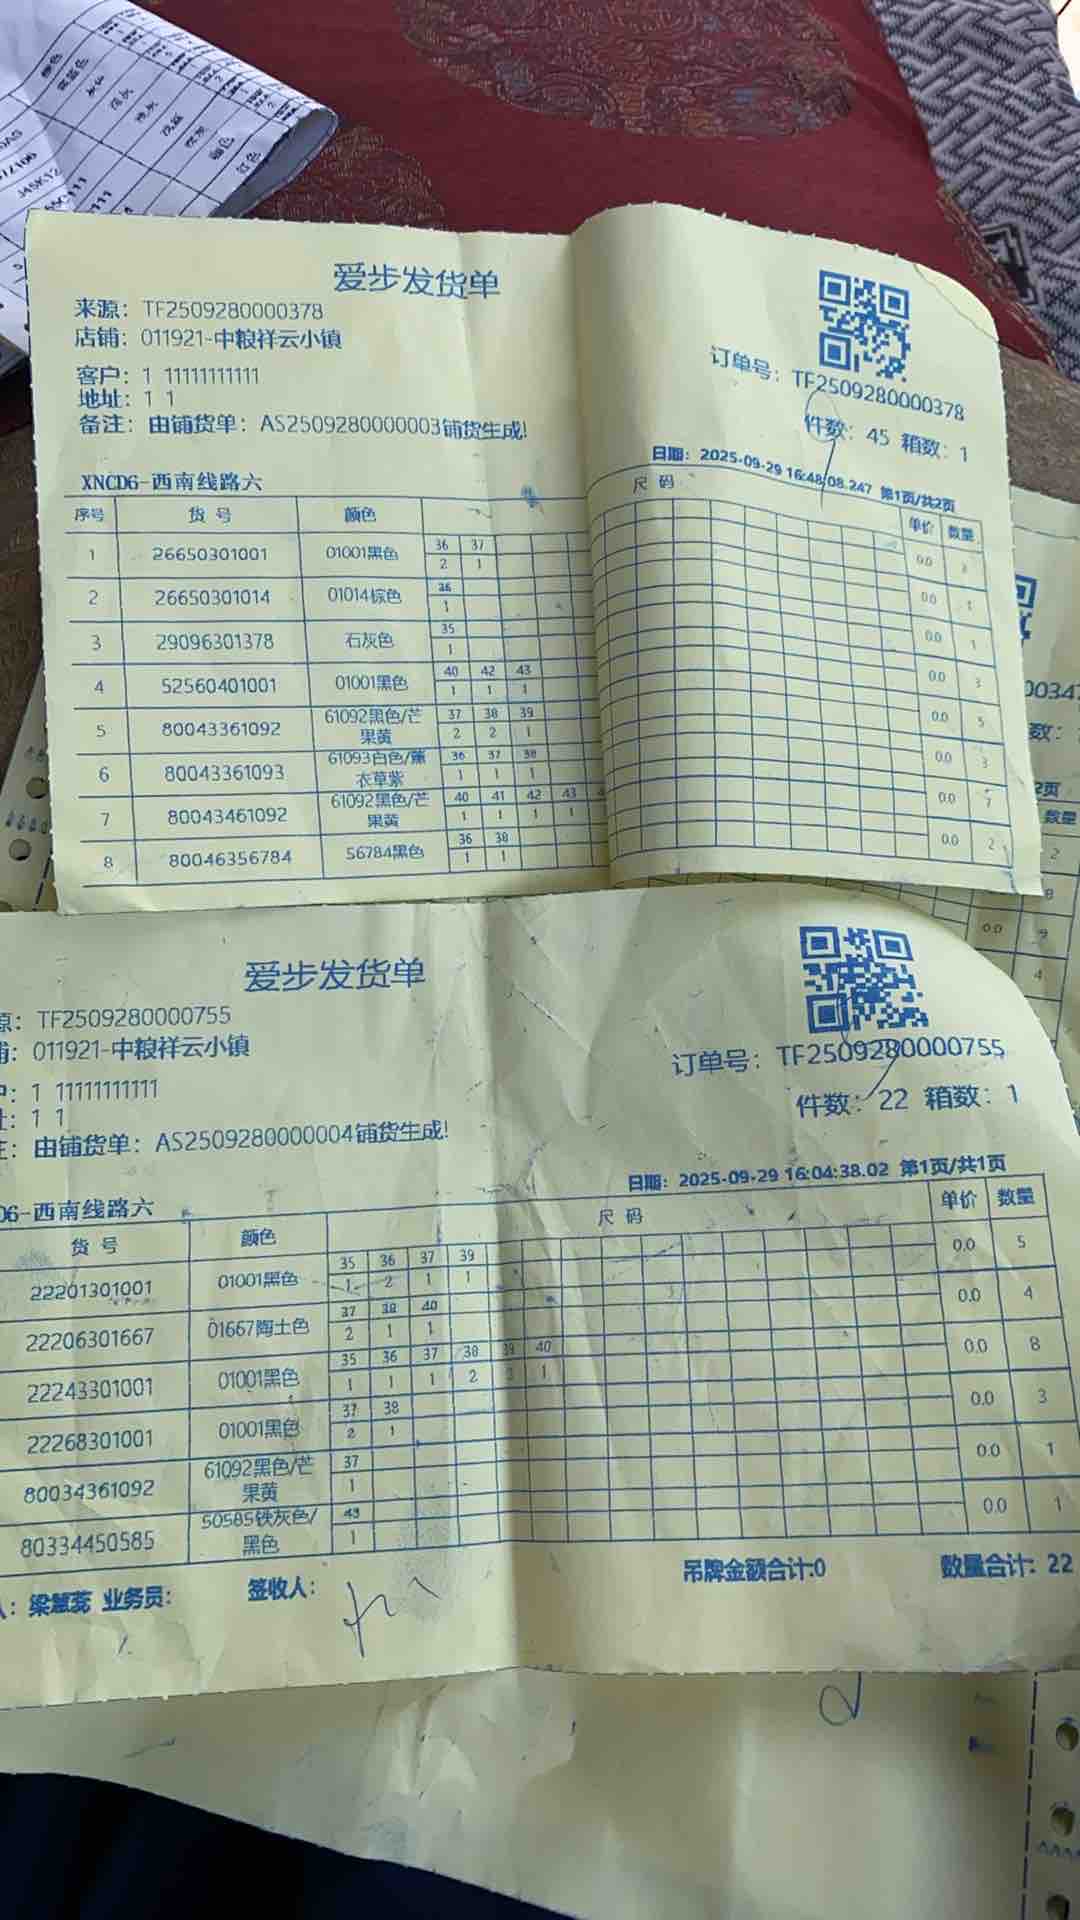 爱步发货单
来源: TF2509280000378
店铺: 011921-中粮祥云小镇
客户: 1 11111111111
地址: 1 1
备注: 由铺货单: AS2509280000003铺货生成!
订单号: TF2509280000378
件数: 45 箱数: 1
XNCD6-西南线路六
日期: 2025-09-29 16:48:08.247 第1页/共2页
序号 货号 颜色 尺码 单价 数量
36 37
1 26650301001 01001黑色 0.0
2 1
36
2 26650301014 01014棕色 0.0 1
1
35
3 29096301378 石灰色 0.0 1
1
40 42 43
4 52560401001 01001黑色 0.0 3
1 1 1
37 38 39
5 80043361092 61092黑色/芒果黄 0.0 5
2 2 1
36 37 38
6 80043361093 61093白色/薰衣草紫 0.0 3
1 1 1
40 41 42 43
7 80043461092 61092黑色/芒果黄 0.0 7
1 1 1 1
36 38
8 80046356784 56784黑色 0.0 2
1 1
爱步发货单
源: TF2509280000755
铺: 011921-中粮祥云小镇
户: 1 11111111111
址: 1 1
注: 由铺货单: AS2509280000004铺货生成!
订单号: TF2509280000755
件数: 22 箱数: 1
D6-西南线路六
日期: 2025-09-29 16:04:38.02 第1页/共1页
货号 颜色 尺码 单价 数量
35 36 37 39
22201301001 01001黑色 0.0 5
1 2 1 1
37 38 40
22206301667 01667陶土色 0.0 4
2 1 1
35 36 37 38 39 40
22243301001 01001黑色 0.0 8
1 1 1 2 1
37 38
22268301001 01001黑色 0.0 3
2 1
37
80034361092 61092黑色/芒果黄 0.0 1
1
43
80334450585 50585铁灰色/黑色 0.0 1
1
吊牌金额合计:0 数量合计: 22
梁慧蕊 业务员: 签收人: